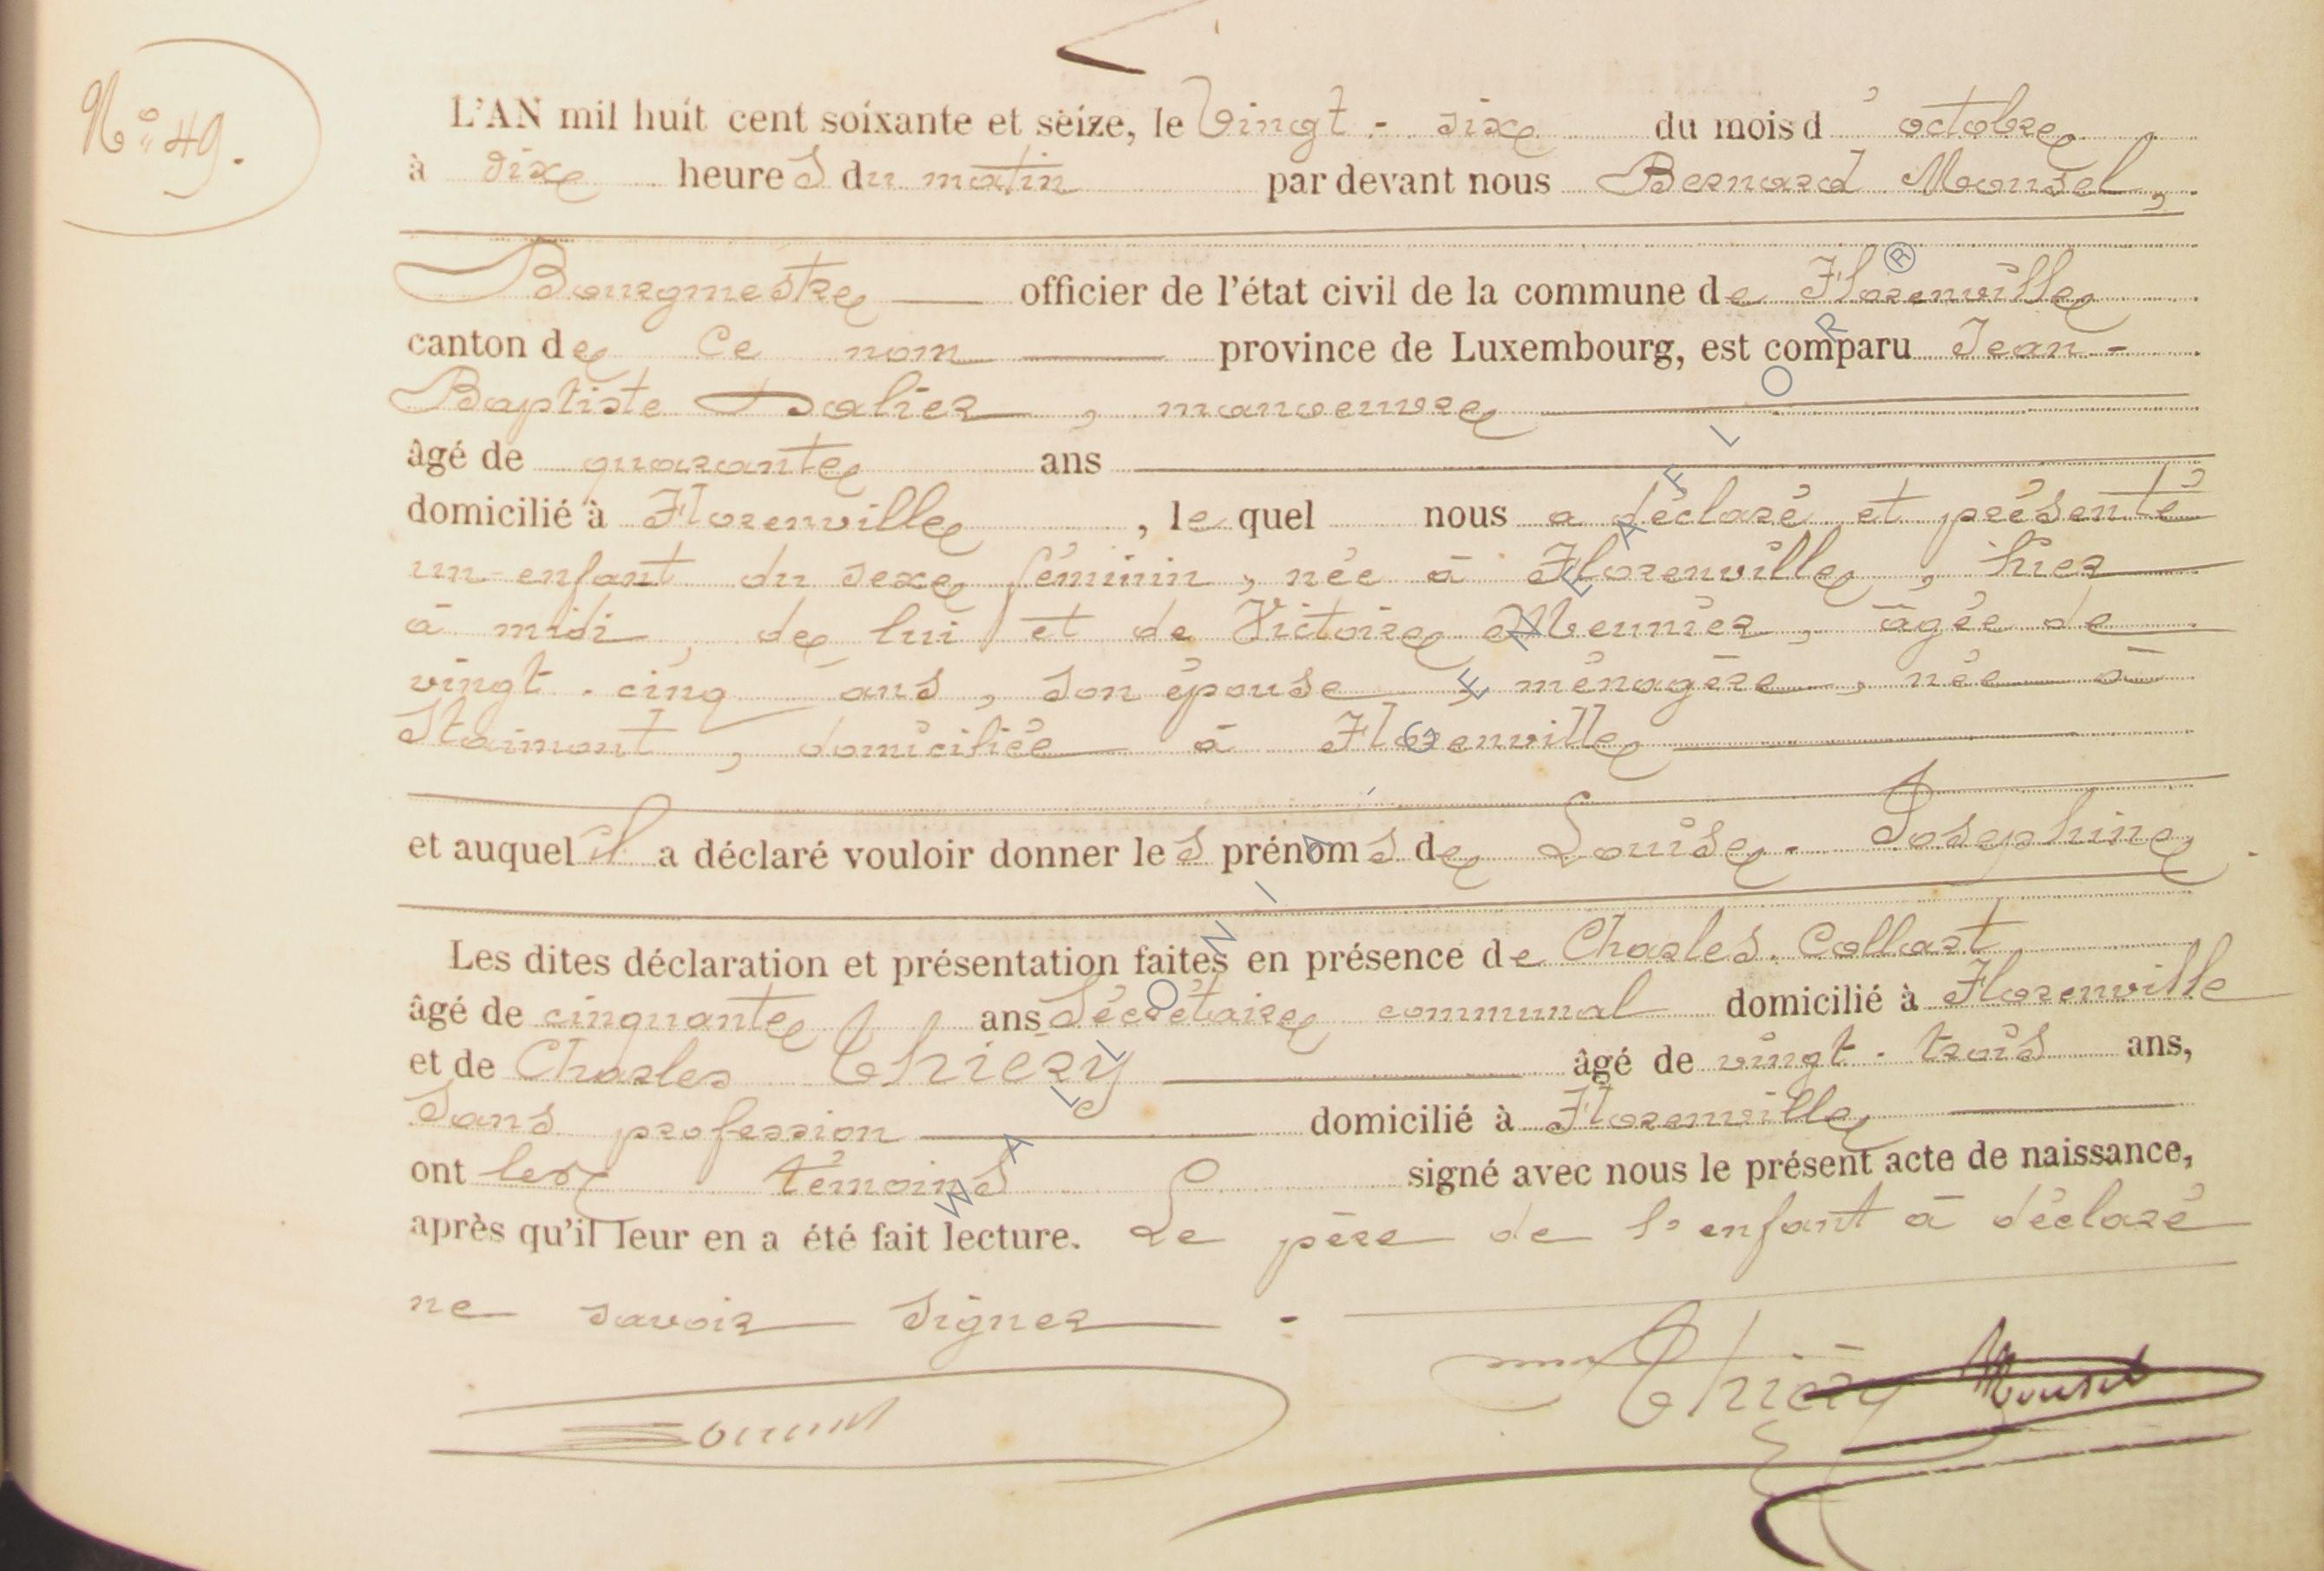 N° 49.
L'AN mil huit cent soixante et seize, le Vingt - six du mois d'octobre,
à dix heures du matin par devant nous Bernard Monsel,
Bourgmestre officier de l'état civil de la commune de Florenville
canton de Ce nom province de Luxembourg, est comparu Jean-
Baptiste Dalier, manoeuvre
âgé de quarante ans
domicilié à Florenville, lequel nous a déclaré et présenté
un enfant du sexe féminin, née à Florenville, hier
à midi, de lui et de Victoire Meunier, âgée de
vingt-cinq ans, son épouse ménagère, née à
Staimont, domiciliée à Florenville
et auquel il a déclaré vouloir donner les prénoms de Louise-Josephine.
Les dites déclaration et présentation faites en présence de Charles Collart
âgé de cinquante ans Sécrétaire communal domicilié à Florenville
et de Charles Thiéry âgé de vingt-trois ans,
Sans profession domicilié à Florenville
ont les témoins signé avec nous le présent acte de naissance,
après qu'il leur en a été fait lecture. Le père de l'enfant à déclaré
ne savoir signer -
Thiéry Monsel
WALLONIA GENEAFLOR®